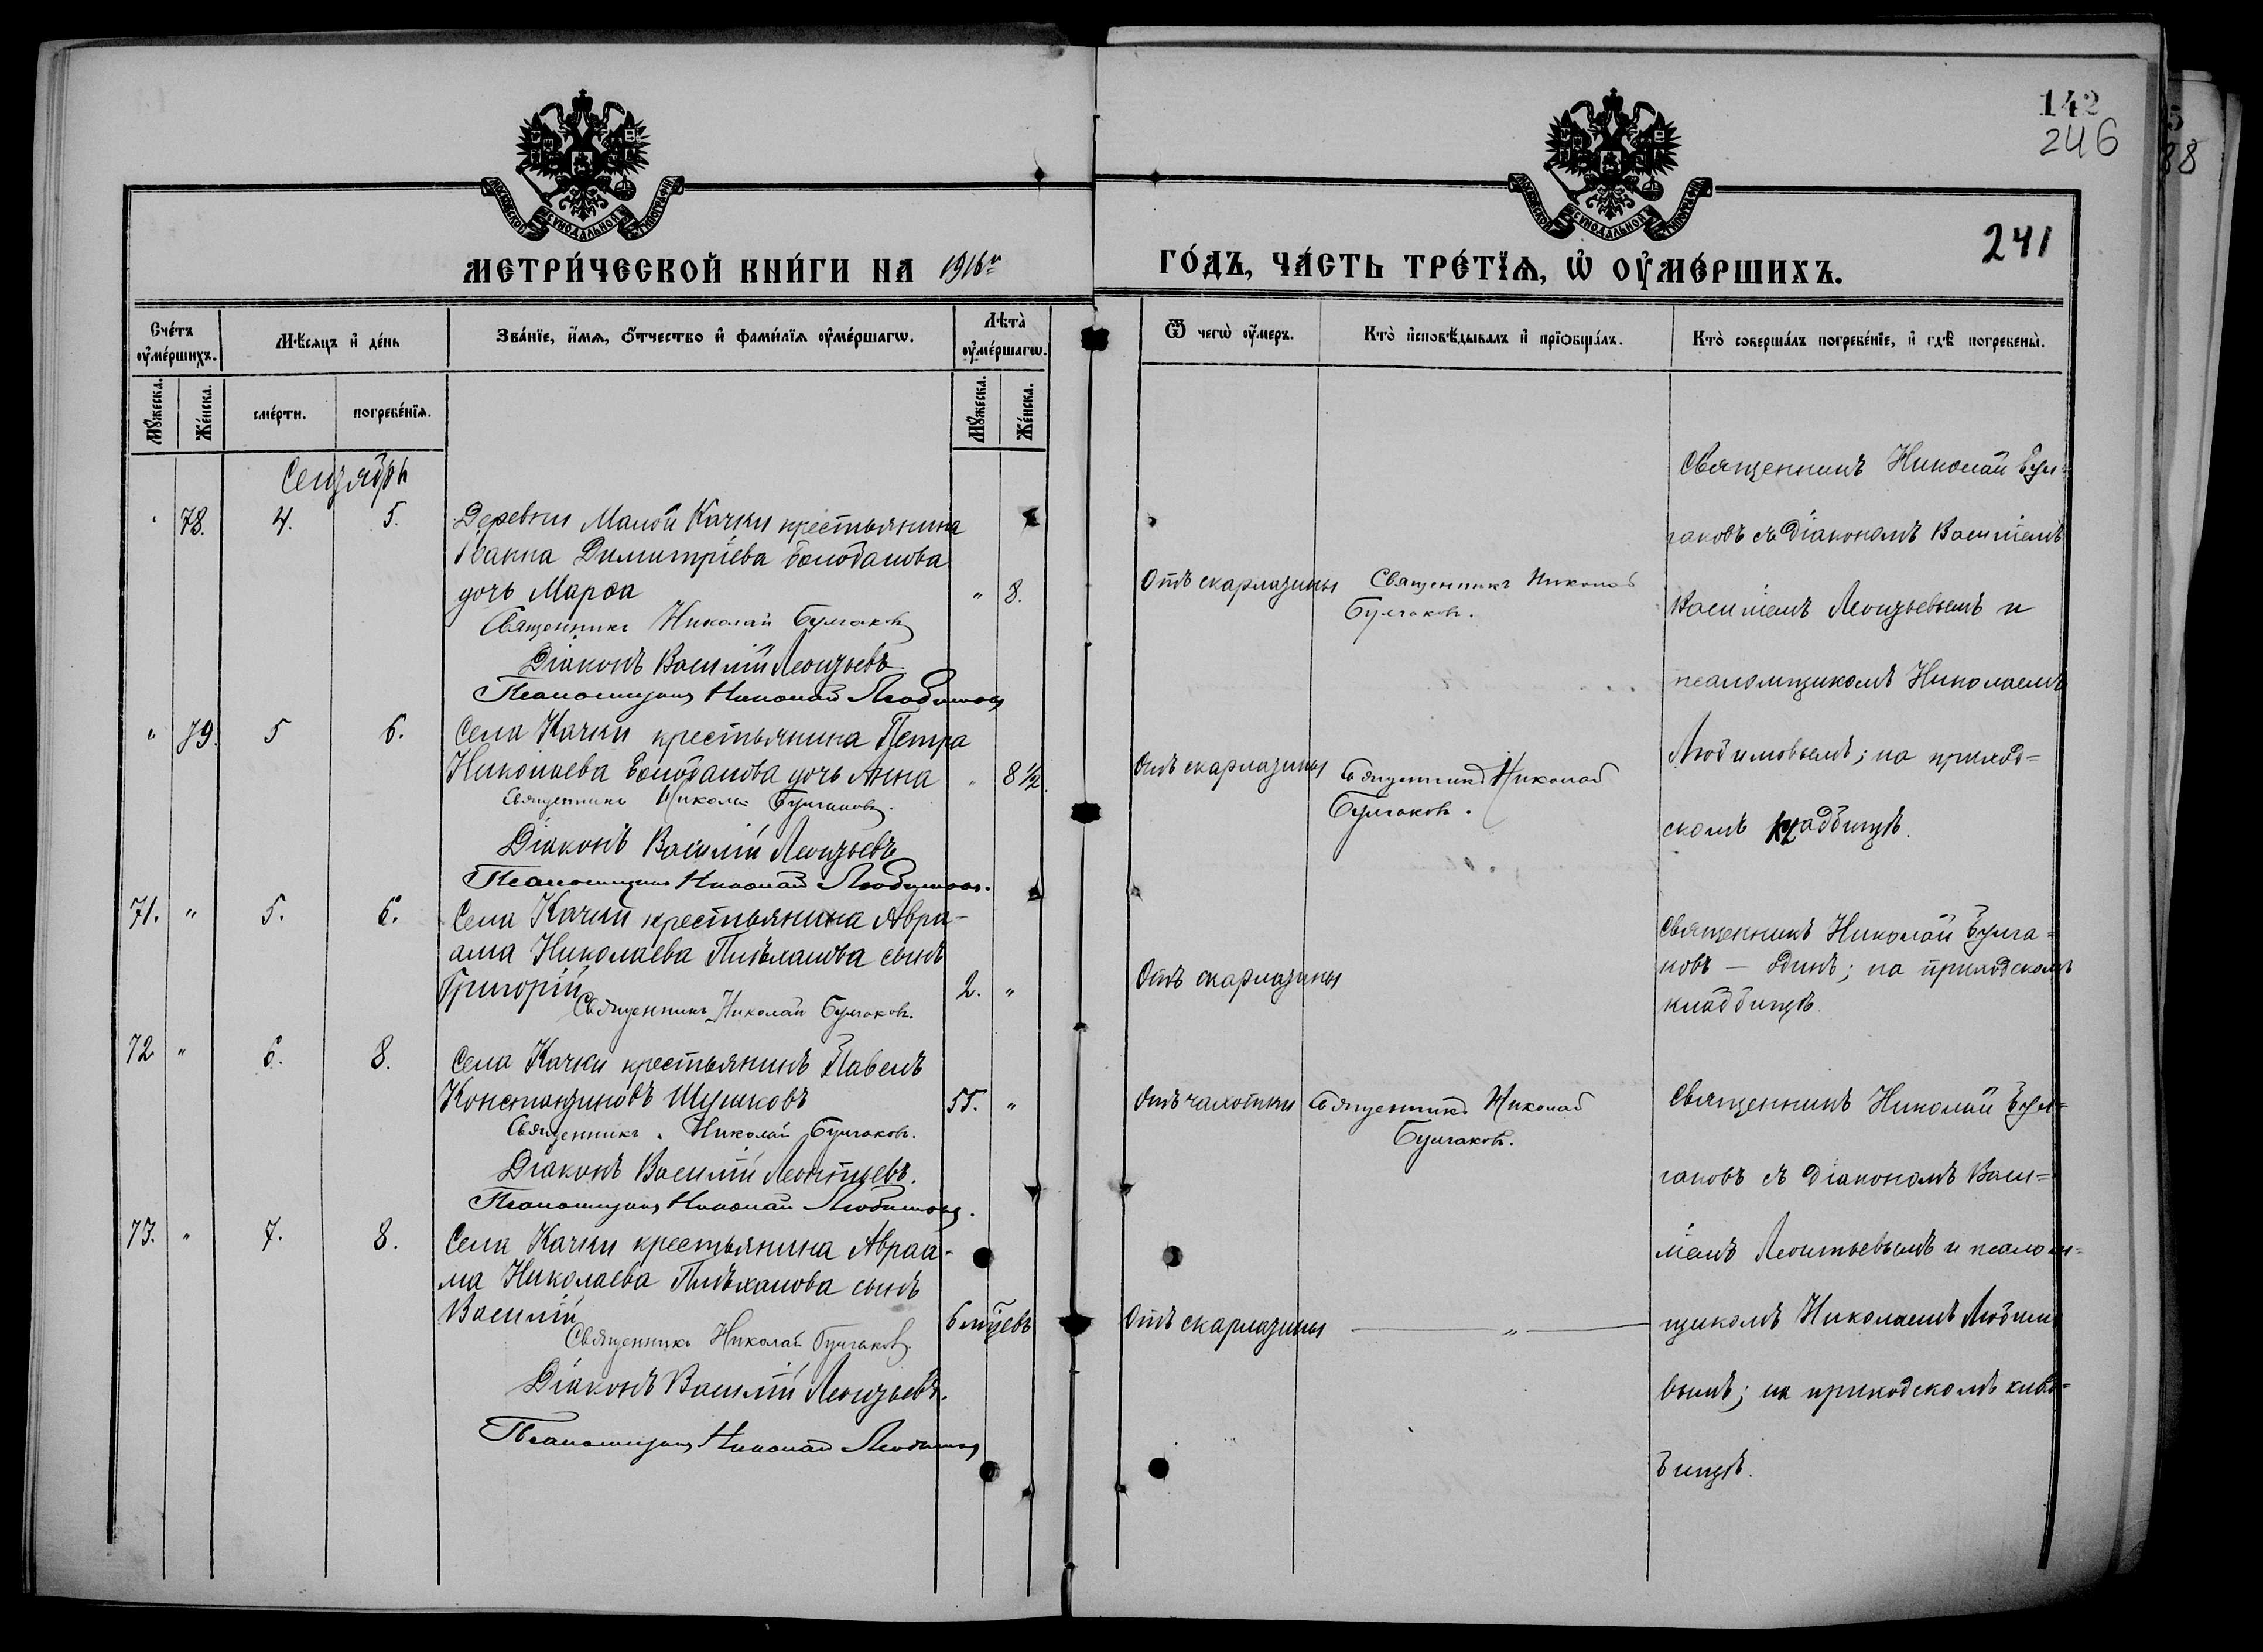 142
246
241
МЕТРИ́ЧЕСКОЙ КНИ́ГИ НА 1916й
ГО́ДЪ, ЧА́СТЬ ТРЕ́ТЇѦ, Ѡ҆ ОУ҆МЕ́РШИХЪ.
Сче́тъ оу҆ме́ршихъ.
Мѣ́сяцъ и҆ де́нь
Зва́нїе, и҆́мѧ, ѻ҆́тчество и҆ фами́лїѧ оу҆ме́ршагѡ.
Лѣта̀ оу҆ме́ршагѡ.
Ѿ чегѡ̀ оу҆́меръ.
Кто̀ и҆сповѣ́дывалъ и҆ прїѻбща́лъ.
Кто̀ соверша́лъ погребе́нїе, и҆ гдѣ̀ погребены̀.
Мꙋ́жеска. Же́нска.
сме́рти. погребе́нїѧ.
Мꙋ́жеска. Же́нска.
Сентябрь
" 78. 4. 5. Деревни Малой Качки крестьянина
Іоанна Димитріева Болобанова
дочь Марѳа " 8.
Священникъ Николай Булгаковъ
Діаконъ Василій Леонтьевъ
Псаломщикъ Николай Любимовъ
Отъ скарлатины
Священникъ Николай
Булгаковъ.
Священникъ Николай Бул=
гаковъ съ діакономъ Василіемъ
Василіемъ Леонтьевымъ и
псаломщикомъ Николаемъ
Любимовымъ; на приход=
скомъ кладбищѣ.
" 79. 5 6. Села Качки крестьянина Петра
Николаева Болобанова дочь Анна " 8 1/2
Священникъ Николай Булгаковъ.
Діаконъ Василій Леонтьевъ
Псаломщикъ Николай Любимовъ.
Отъ скарлатины
Священникъ Николай
Булгаковъ.
71. " 5. 6. Села Качки крестьянина Авра-
ама Николаева сынъ
Григорій 2. "
Священникъ Николай Булгаковъ.
Отъ скарлатины
Священникъ Николай Булга=
ковъ — одинъ; на приходскомъ
кладбищѣ.
72 " 6. 8. Села Качки крестьянинъ Павелъ
Константиновъ Шушковъ 55. "
Священникъ Николай Булгаковъ.
Діаконъ Василій Леонтьевъ.
Псаломщикъ Николай Любимовъ.
Отъ чахотки
Священникъ Николай
Булгаковъ.
Священникъ Николай Бул=
гаковъ съ діакономъ Васи=
ліемъ Леонтьевымъ и псалом=
щикомъ Николаемъ Любимо
вымъ; на приходскомъ клад=
бищѣ.
73. " 7. 8. Села Качки крестьянина Авраа-
ма Николаева Плѣханова сынъ
Василій 6 мцевъ
Священникъ Николай Булгаковъ.
Діаконъ Василій Леонтьевъ.
Псаломщикъ Николай Любимовъ
Отъ скарлатины — " —